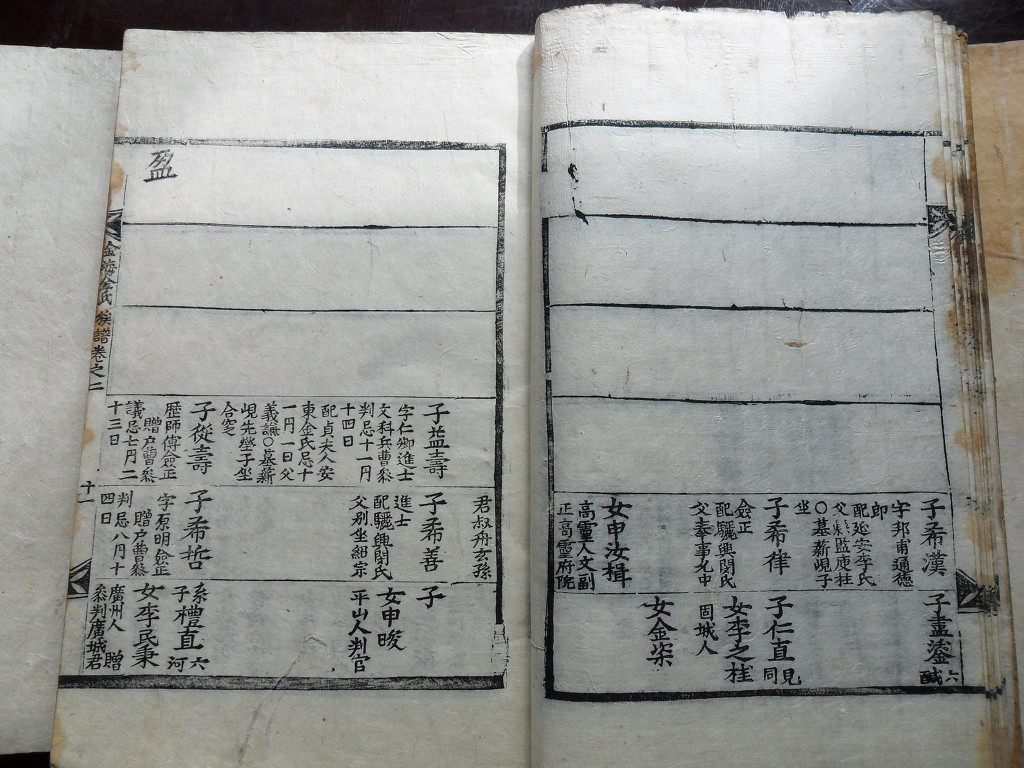 子希漢
字邦甫通德
郎
配延安李氏
○墓薪峴子
坐
子希律
僉正
配驪興閔氏
父奉事允中
女申汝楫
高靈人文副
正高靈府院
子盡鎏
六
子仁直見同
女李之桂
固城人
女金柒
君叔舟玄孫
子益壽
字仁卿進士
文科兵曹叅
判忌十一月
十四日
配貞夫人安
東金氏忌十
一月一日父
義謙○墓薪
峴先塋子坐
合窆
子從壽
歷師傅僉正
贈戶曹叅
議忌七月二
十三日
子希善
進士
配驪興閔氏
父別坐細宗
子希哲
字原明僉正
贈戶曹叅
判忌八月十
四日
子
女申晙
平山人判官
系子禮直六河
女李民秉
廣州人 贈
叅判廣城君
盈
金海金氏族譜卷之二
十一